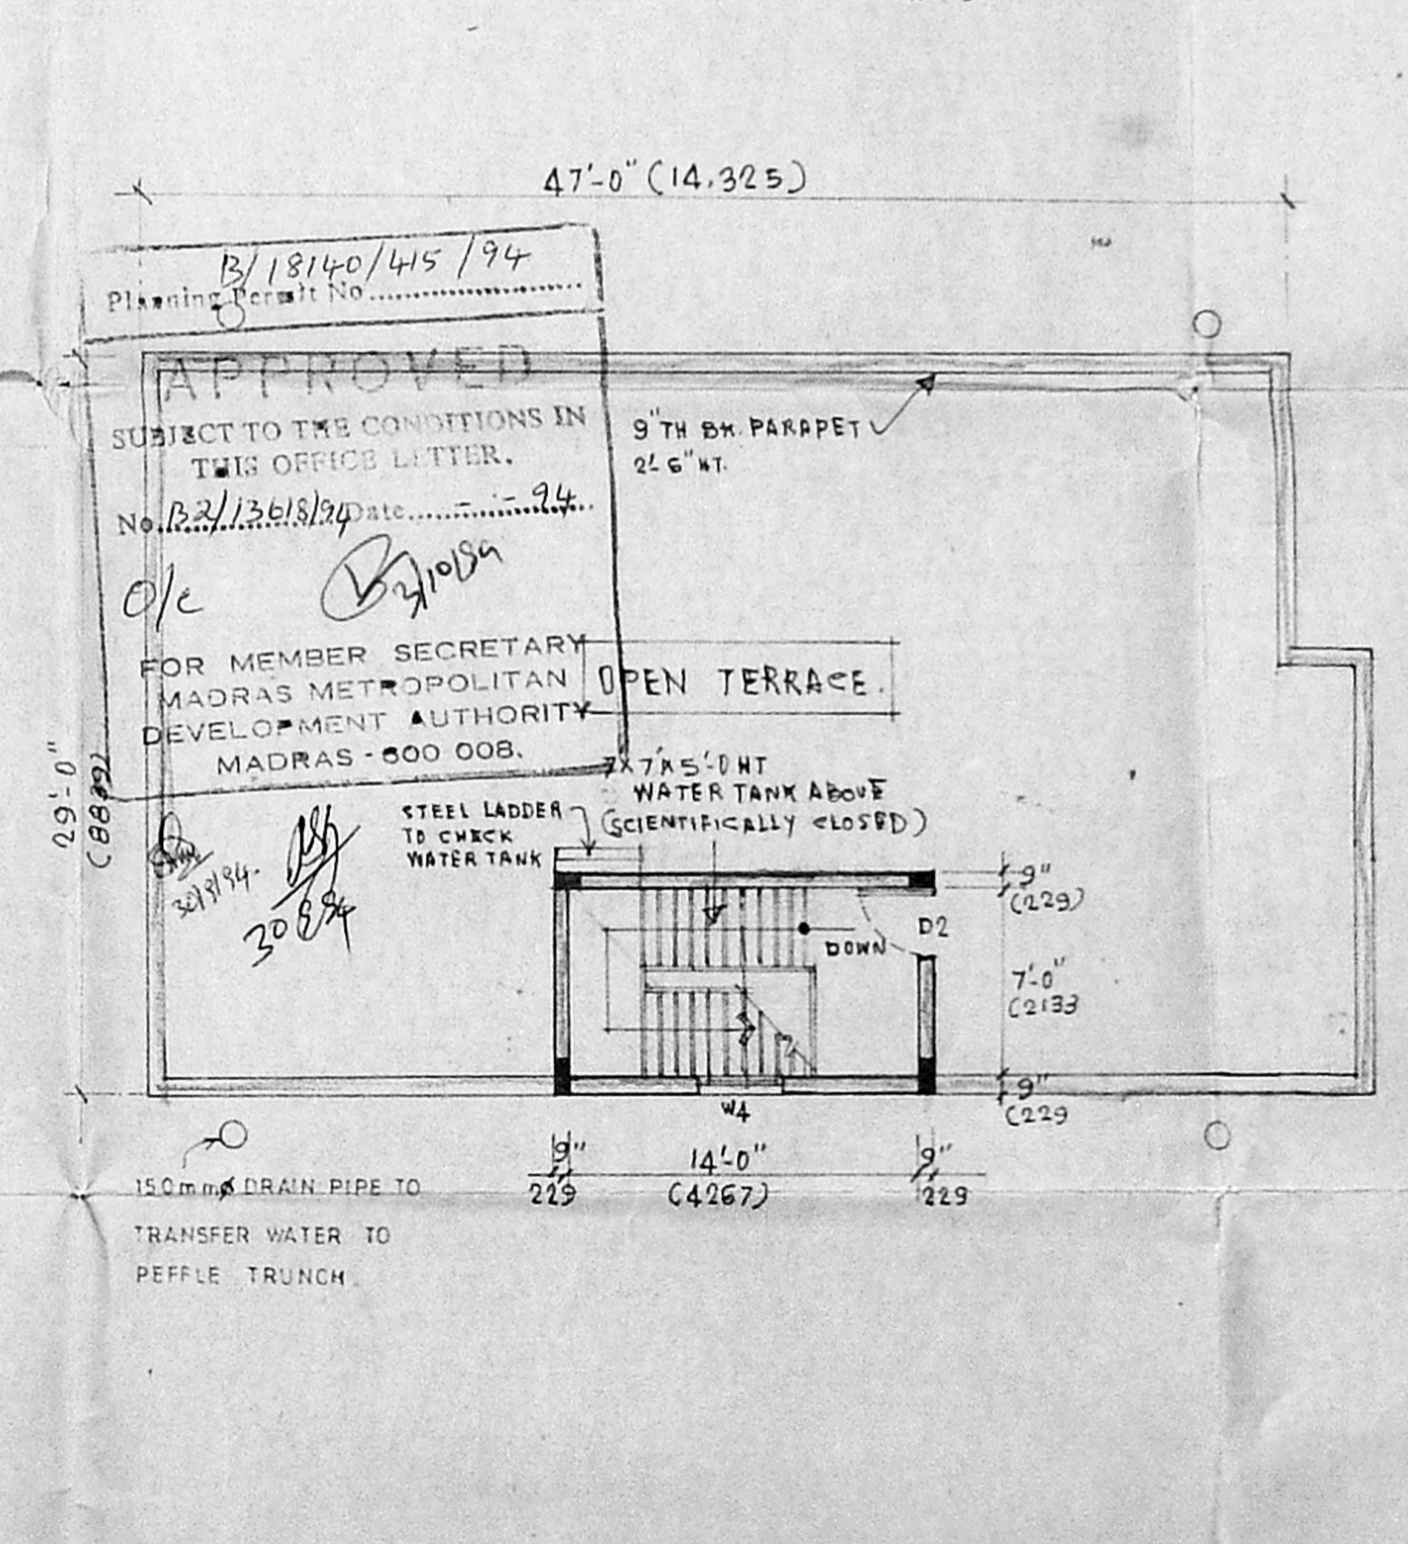 47'-0" (14,325)
B/18140/415/94
Planning Permit No
APPROVED
SUBJECT TO THE CONDITIONS IN
THIS OFFICE LETTER.
No. B2/13618/94 Date - - 94
O/c
3/10/94
FOR MEMBER SECRETARY
MADRAS METROPOLITAN
DEVELOPMENT AUTHORITY
MADRAS - 600 008.
9" TH BK. PARAPET
2'-6" HT.
OPEN TERRACE.
29'-0"
(8839)
7'X7'X5'-0 HT
WATER TANK ABOVE
(SCIENTIFICALLY CLOSED)
STEEL LADDER
TO CHECK
WATER TANK
30/9/94.
30/9/94
9"
(229)
D2
DOWN
7'-0"
(2133
9"
(229
W4
9" 14'-0" 9"
229 (4267) 229
150mmø DRAIN PIPE TO
TRANSFER WATER TO
PEFFLE TRUNCH.